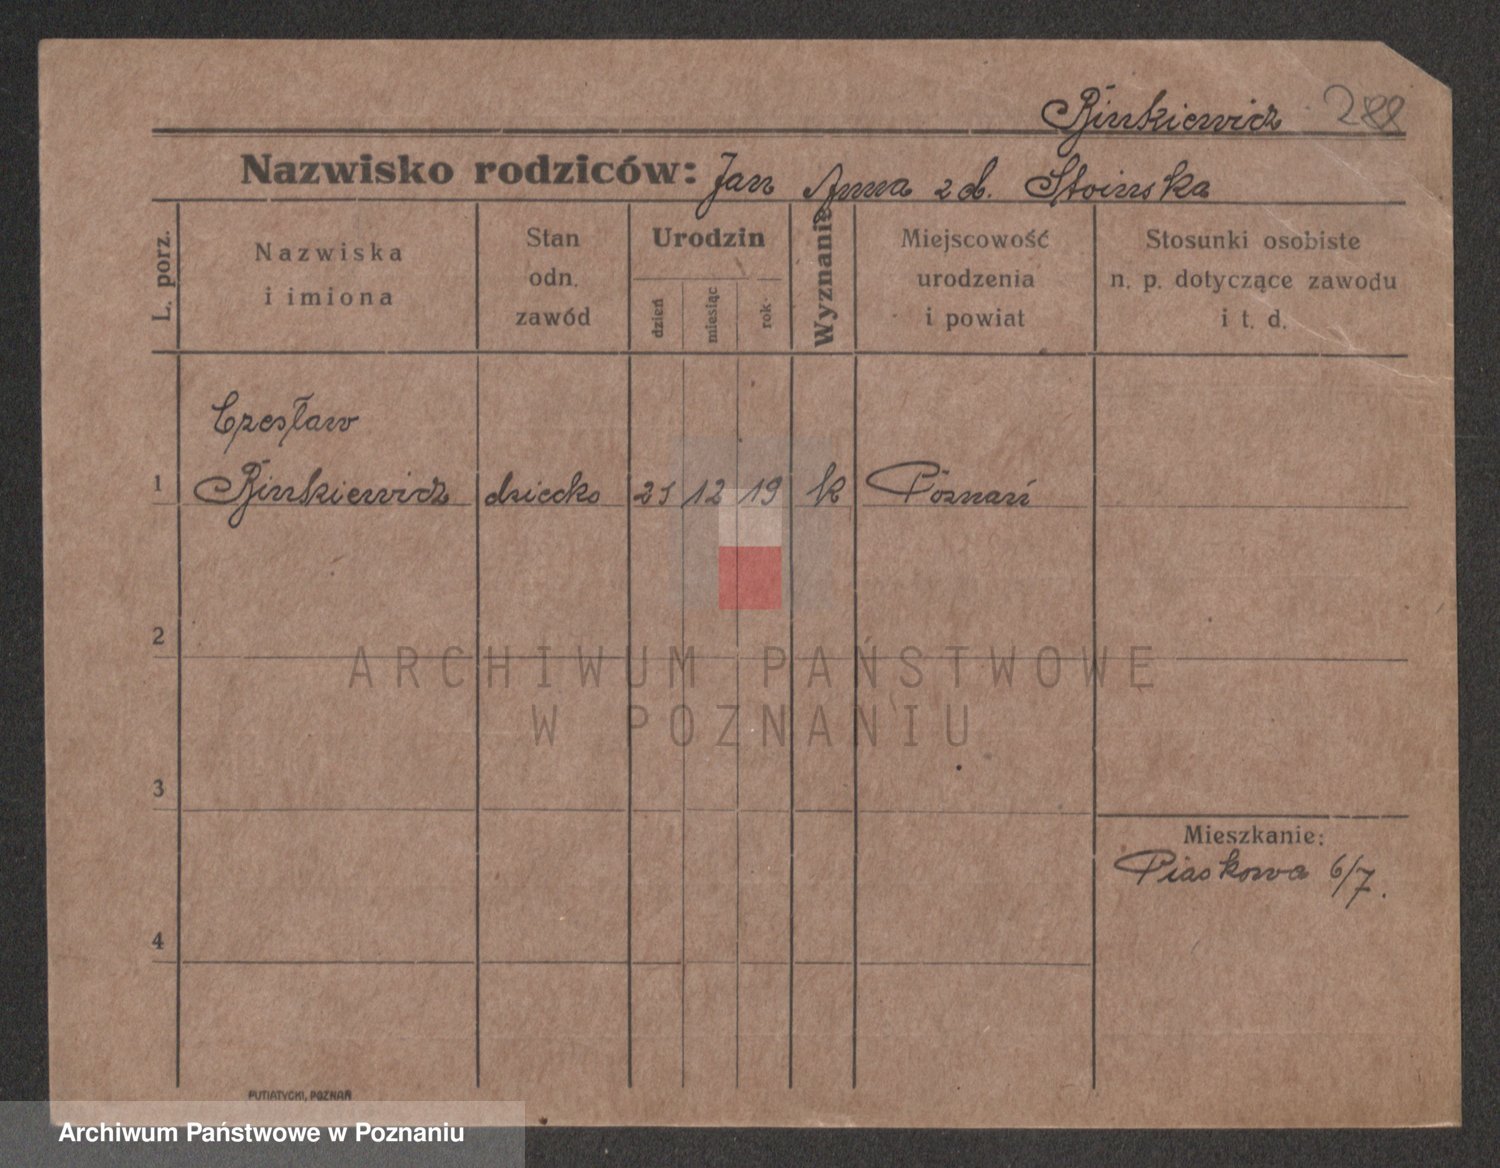 Binkiewicz 288
Nazwisko rodziców: Jan Anna zd. Stoinska
L. porz.
Nazwiska
i imiona
Stan
odn.
zawód
Urodzin
dzień
miesiąc
rok
Wyznanie
Miejscowość
urodzenia
i powiat
Stosunki osobiste
n. p. dotyczące zawodu
i t. d.
Czesław
1 Binkiewicz dziecko 21 12 19 k Poznań
2
ARCHIWUM PAŃSTWOWE
W POZNANIU
3
Mieszkanie:
Piaskowa 6/7.
4
PUTIATYCKI, POZNAŃ
Archiwum Państwowe w Poznaniu